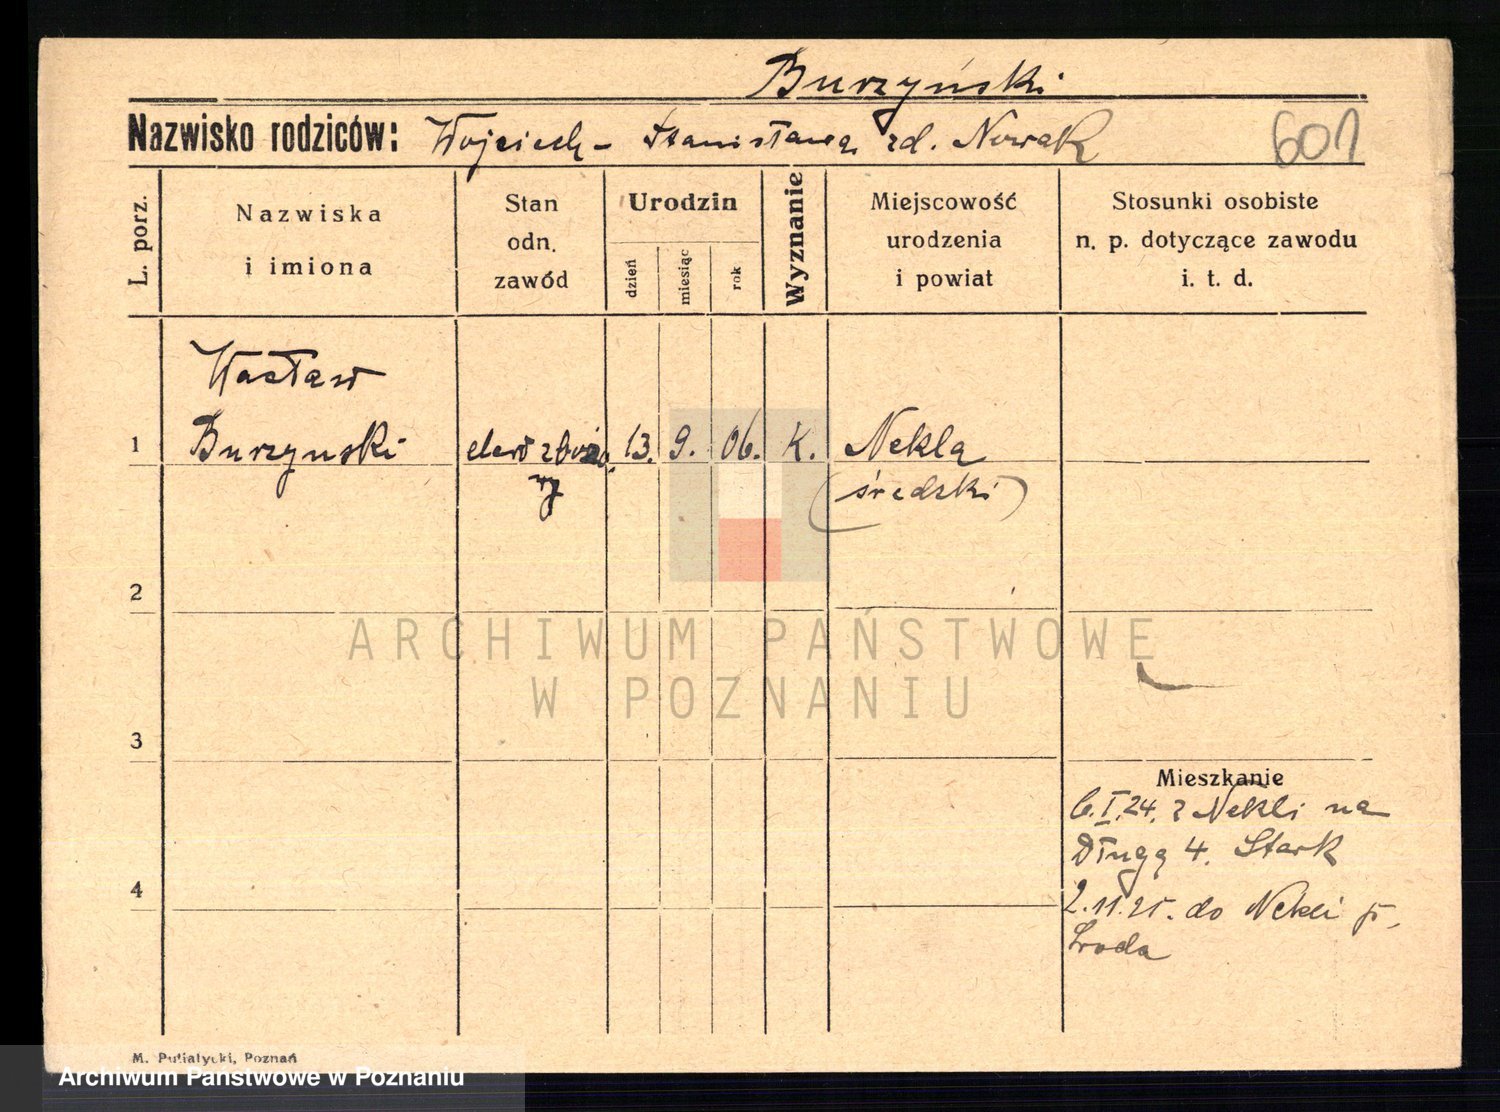 Burzyński
Nazwisko rodziców: Wojciech - Stanisława zd. Nowak
601
L. porz.
Nazwiska
i imiona
Stan
odn.
zawód
Urodzin
dzień
miesiąc
rok
Wyznanie
Miejscowość
urodzenia
i powiat
Stosunki osobiste
n. p. dotyczące zawodu
i. t. d.
Wacław
1
Burzynski
elew zbożo
wy
13. 9. 06. K.
Nekla
(średzki)
2
ARCHIWUM PAŃSTWOWE
W POZNANIU
3
4
Mieszkanie
6.I.24. z Nekli na
Długą 4. Stark
2.11.25. do Nekli p.
Środa
M. Putiatycki, Poznań
Archiwum Państwowe w Poznaniu